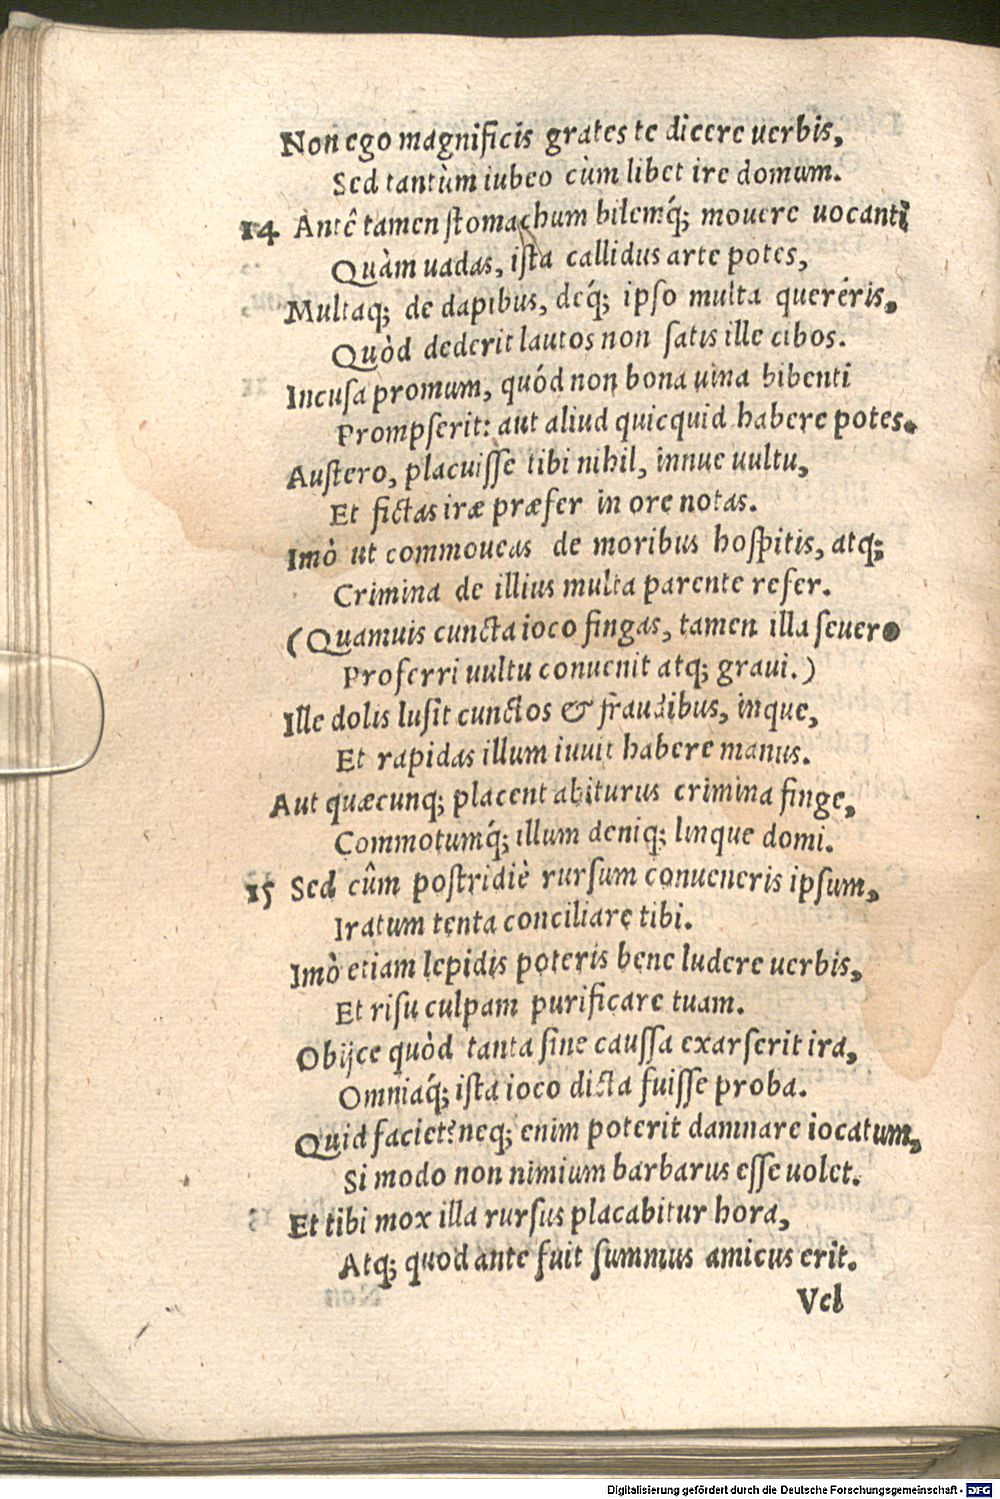 Non ego magnificis grates te dicere uerbis,
Sed tantùm iubeo cùm libet ire domum.
14 Antê tamen stomachum bilemq́; mouere uocanti
Quàm uadas, ista callidus arte potes,
Multaq; de dapibus, deq́; ipso multa queréris,
Quòd dederit lautos non satis ille cibos.
Incusa promum, quód non bona uina bibenti
Prompserit: aut aliud quicquid habere potes.
Austero, placuisse tibi nihil, innue uultu,
Et fictas iræ præfer in ore notas.
Imò ut commoueas de moribus hospitis, atq;
Crimina de illius multa parente refer.
(Quamuis cuncta ioco fingas, tamen illa seuero
Proferri uultu conuenit atq; graui.)
Ille dolis lusit cunctos & fraudibus, inque,
Et rapidas illum iuuit habere manus.
Aut quæcunq; placent abiturus crimina finge,
Commotumq́; illum deniq; linque domi.
15 Sed cûm postridiè rursum conueneris ipsum,
Iratum tenta conciliare tibi.
Imò etiam lepidis poteris bene ludere uerbis,
Et risu culpam purificare tuam.
Obijce quòd tanta sine caussa exarserit ira,
Omniaq́; ista ioco dicta fuisse proba.
Quid faciet? neq; enim poterit damnare iocatum,
Si modo non nimium barbarus esse uolet.
Et tibi mox illa rursus placabitur hora,
Atq; quod ante fuit summus amicus erit.
Vel
Digitalisierung gefördert durch die Deutsche Forschungsgemeinschaft - DFG